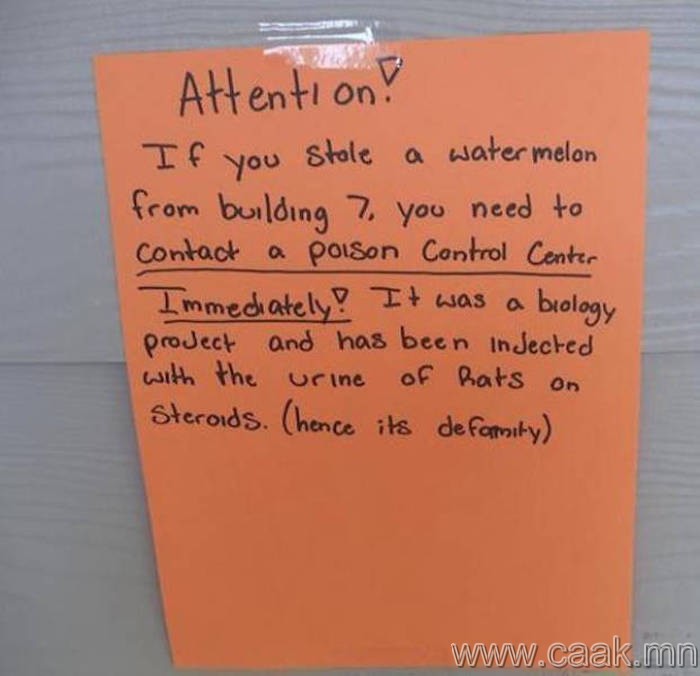 Attention!
If you stole a watermelon
from building 7, you need to
contact a poison Control Center
Immediately! It was a biology
project and has been injected
with the urine of Rats on
Steroids. (hence its defamity)
www.caak.mn